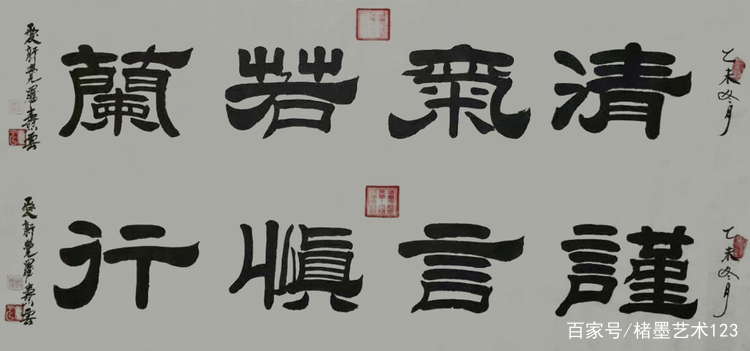 乙未冬月
清氣若蘭
愛新覺羅
乙未冬月
謹言慎行
愛新覺羅
百家号/楮墨艺术123